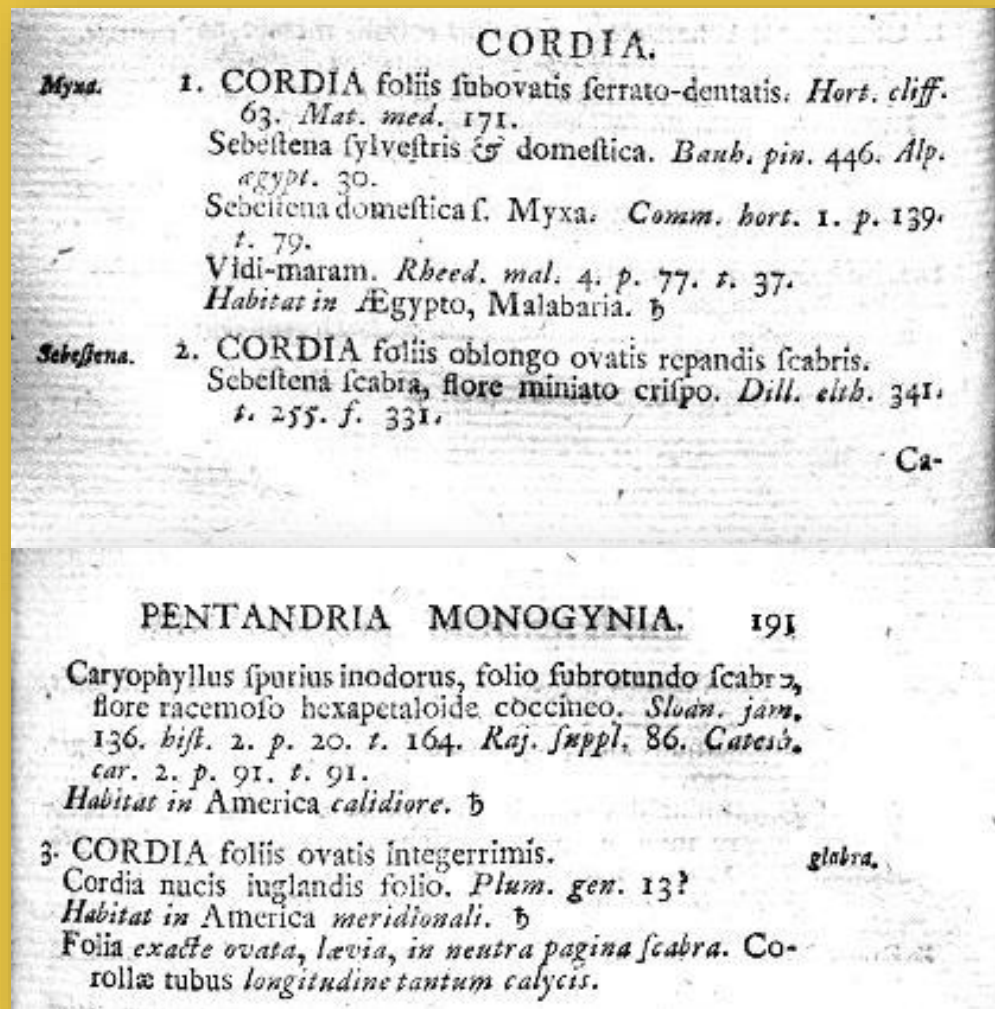 CORDIA.
Myxa. 1. CORDIA foliis ſubovatis ſerrato-dentatis. Hort. cliff.
63. Mat. med. 171.
Sebeſtena ſylveſtris & domeſtica. Bauh. pin. 446. Alp.
ægypt. 30.
Sebeſtena domeſtica ſ. Myxa. Comm. hort. 1. p. 139.
t. 79.
Vidi-maram. Rheed. mal. 4. p. 77. t. 37.
Habitat in Ægypto, Malabaria. ♄
Sebeſtena. 2. CORDIA foliis oblongo ovatis repandis ſcabris.
Sebeſtena ſcabra, flore miniato criſpo. Dill. elth. 341.
t. 255. f. 331.
Ca-
PENTANDRIA MONOGYNIA. 191
Caryophyllus ſpurius inodorus, folio ſubrotundo ſcabro,
flore racemoſo hexapetaloide coccineo. Sloan. jam.
136. hiſt. 2. p. 20. t. 164. Raj. ſuppl. 86. Catesb.
car. 2. p. 91. t. 91.
Habitat in America calidiore. ♄
3. CORDIA foliis ovatis integerrimis. glabra.
Cordia nucis iuglandis folio. Plum. gen. 13?
Habitat in America meridionali. ♄
Folia exacte ovata, lævia, in neutra pagina ſcabra. Co-
rollæ tubus longitudine tantum calycis.